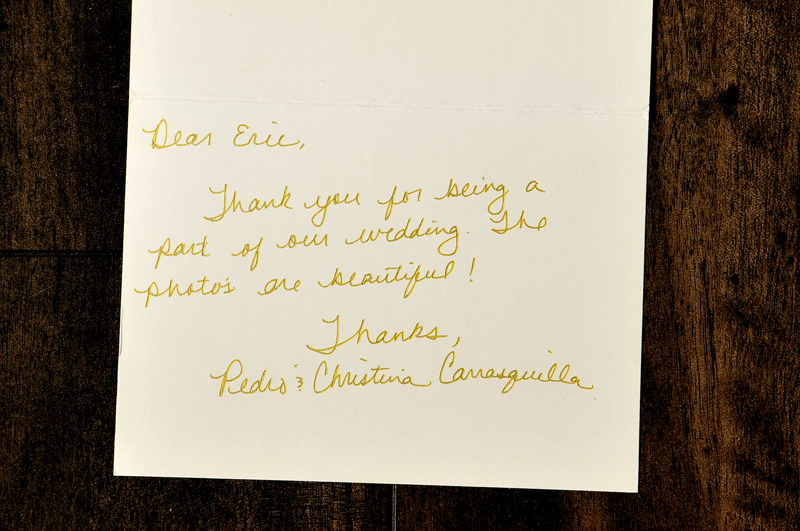 Dear Eric,
Thank you for being a
part of our wedding. The
photo's are beautiful!
Thanks,
Pedro & Christina Carrasquilla